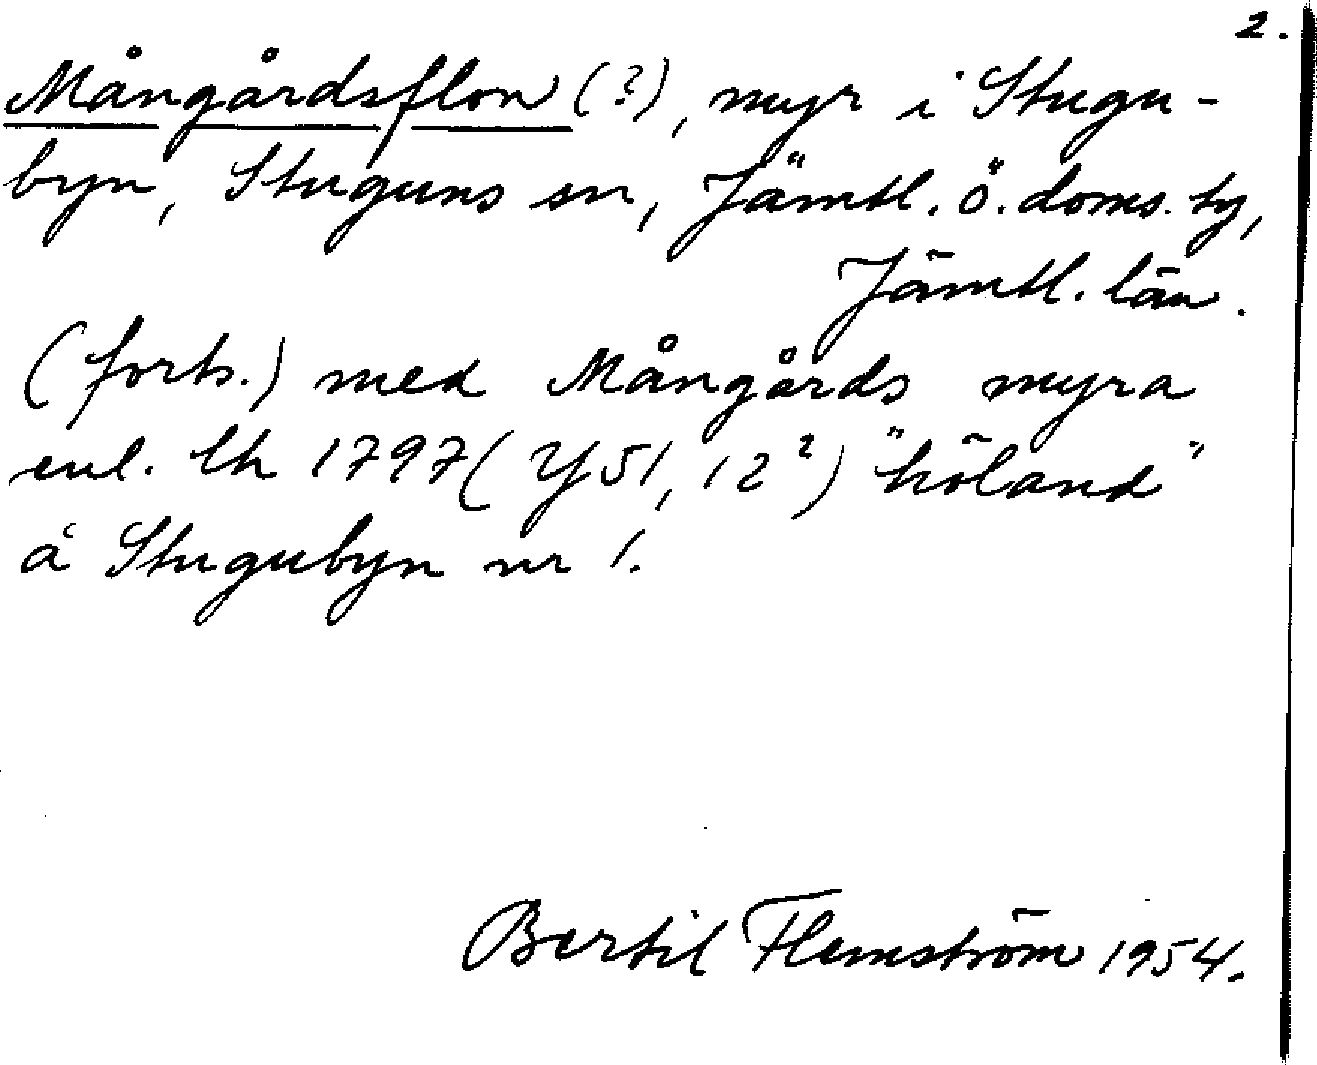 2.
Mångårdsflon (?), myr i Stugu-
byn, Stuguns sn, Jämtl. ö. doms. ty,
Jämtl. län.
(forts.) med Mångårds myra
enl. lh 1797 (Y51, 12²) "höland"
å Stugubyn nr 1.
Bertil Flemström 1954.